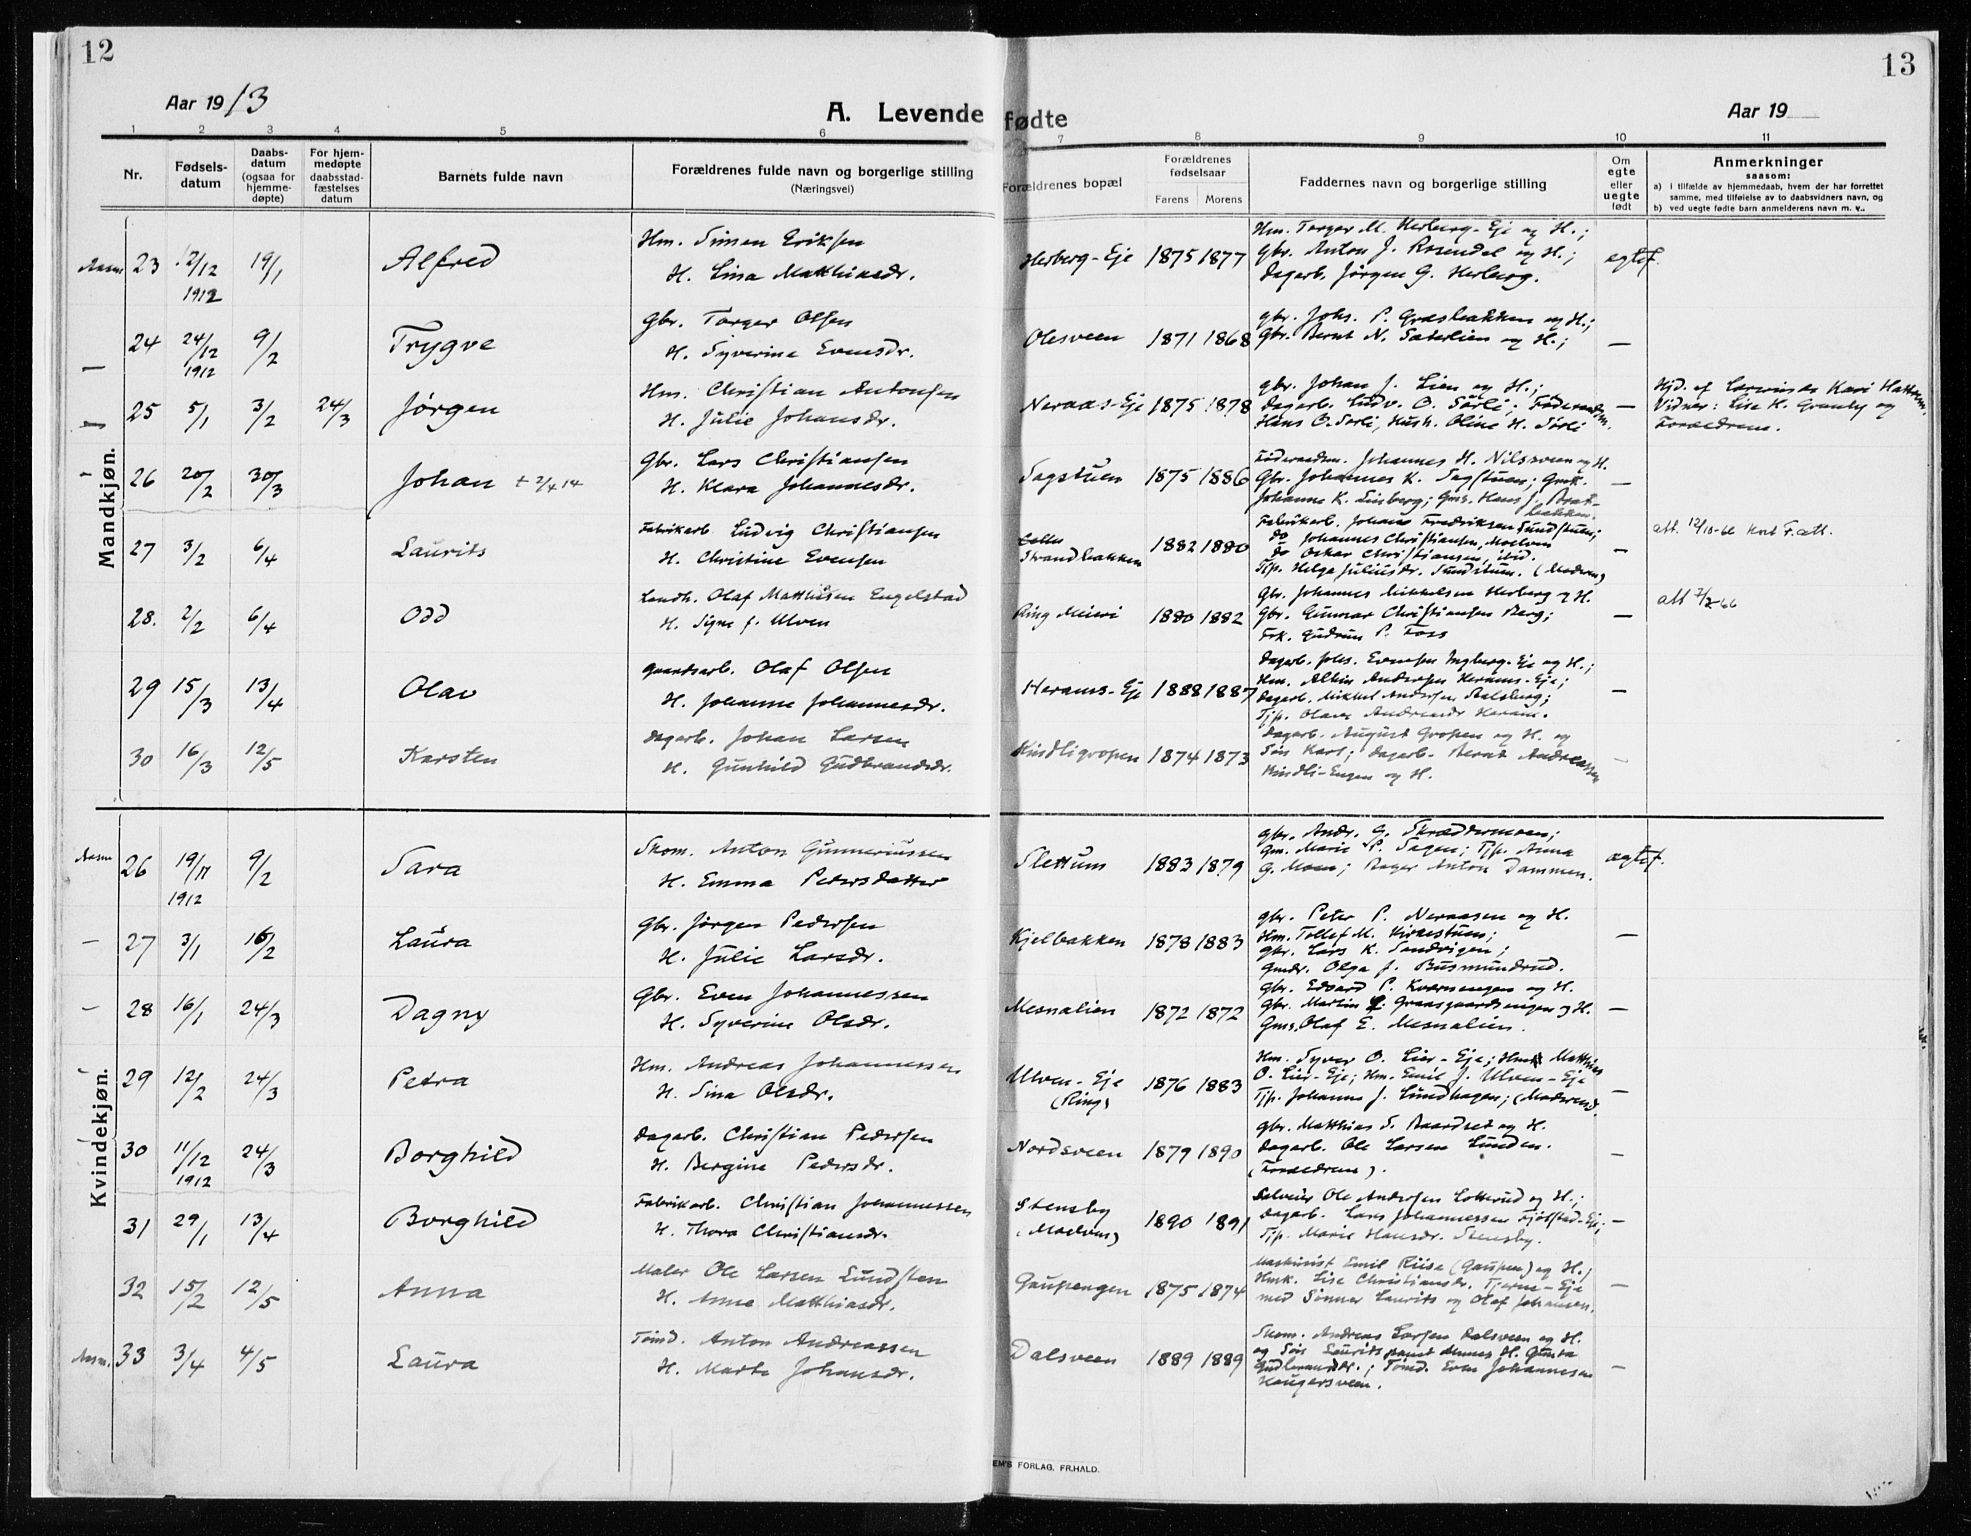 12
13
Aar 1913
A. Levende fødte
Aar 19
1 2 3 4 5 6 7 8 9 10 11
Nr.
Fødsels-
datum
Daabs-
datum
(ogsaa for
hjemme-
døpte)
For hjem-
medøpte
daabsstad-
fæstelses
datum
Barnets fulde navn
Forældrenes fulde navn og borgerlige stilling
(Næringsvei)
Forældrenes bopæl
Forældrenes
fødselsaar
Farens Morens
Faddernes navn og borgerlige stilling
Om
egte
eller
uegte
født
Anmerkninger
saasom:
a) i tilfælde av hjemmedaab, hvem der har forrettet
samme, med tilføielse av to daabsvidners navn, og
b) ved uegte fødte barn anmelderens navn m. v..
Mandkjøn.
23 12/12 1912 19/1 Alfred
Hm. Simen Eriksen
H. Lina Matthiasdr.
Herberg-Eje 1875 1877
Hm. Torger M. Herberg-Eje og H.;
Gbr. Anton J. Rosendal og H.;
Dagarb. Jørgen G. Herberg.
egtef.
24 24/12 1912 9/2 Trygve
Gbr. Torger Olsen
H. Syverine Evensdr.
Olesveen 1871 1868
gbr. Johs. P. Græsbakken og H.;
Gbr. Bernt N. Sæterlien og H.;
—
25 5/1 3/2 24/3 Jørgen
Hm. Christian Antonsen
H. Julie Johansdr.
Neraas-Eje 1875 1878
gbr. Johan J. Lien og H.;
Dagarb. Ludv. O. Sørli; Føderaadsm.
Hans O. Sørli, Hush. Oline H. Sørli
—
Hjd. af Kari
Vidner: Lise K. Granby og
Forældrene.
26 20/2 30/3 Johan + 2/4 14
Gbr. Lars Christiansen
H. Klara Johannesdr.
Sagstuen 1875 1886
Føderaadsm. Johannes H. Nilssveen og H.
Gbr. Johannes K. Sagstuen; Gmk.
Johanne K. Linberg; Gms. Hans J. Brat-
bakken.
—
27 3/2 6/4 Laurits
Fabrikarb. Ludvig Christiansen
H. Christine Evensen
Strandbakken 1882 1880
Fabrikarb. Johans Fredriksen Sundstuen;
do Johannes Christiansen, Moelven
do Oskar Christiansen, ibid.
Tjp. Helga Juliusdr. Sundstuen. (Moderen)
—
att. 12/10-62
28. 2/2 6/4 Odd
Landh. Olaf Matthisen Engelstad
H. Signe f. Ulven
Ring Meieri 1880 1882
Gbr. Johannes Mikkelsen Herberg og H.
Gbr. Gunnar Christiansen Berg;
Frk. Gudrun P. Foss
—
29 15/3 13/4 Olav
Gaardsarb. Olaf Olsen
H. Johanne Johannesdr.
Herams-Eje 1888 1887
Dagarb. Johs. Evensen Ingberg-Eje og H.;
Hm. Albin Andersen Herams-Eje;
Dagarb. Mikkel Andersen Aalsberg;
Tjp. Olava Andreasdr. Heram.
—
30 16/3 12/5 Karsten
Dagarb. Johan Larsen
H. Gunhild Gudbrandsdr.
Kindligropen 1874 1873
Dagarb. August Gropen og H. og
Søn Karl; Dagarb. Bernt Andreassen
Kindli-Engen og H.
—
Kvindekjøn.
26 19/11 1912 9/2 Sara
Skom. Anton Gunneriussen
H. Emma Pedersdatter
Slettum 1883 1879
gbr. Andr. G. Skræddermoen;
Gm. Marie P. Sagen; Tjp. Anna
G. Moen; Bager Anton Dammen.
egtef.
27 3/1 16/2 Laura
Gbr. Jørgen Pedersen
H. Julie Larsdr.
Kjelbakken 1878 1883
gbr. Peter P. Neraasen og H.
Hm. Tollef M. Kirkestuen;
gbr. Lars K. Sandvigen;
gmdr. Olga J. Busmundrud.
—
28 16/1 24/3 Dagny
Gbr. Even Johannessen
H. Syverine Olsdr.
Mesnalien 1872 1872
Gbr. Edvard P. Kværnengen og H.
Gbr. Martin Graasgaardsengen og H.
Gms. Olaf E. Mesnalien.
—
29 12/2 24/3 Petra
Hm. Andreas Johannessen
H. Sina Olsdr.
Ulven-Eje
(Ring) 1876 1883
Hm. Syver O. Lier-Eje; Matthias
O. Lier-Eje; Hm. Emil J. Ulven-Eje
Tjp. Johanne J. Lundhagen; (Moderen).
—
30 11/12 1912 24/3 Borghild
Dagarb. Christian Pedersen
H. Bergine Pedersdr.
Nordsveen 1879 1890
Gbr. Matthias S. Baardset og H.
Dagarb. Ole Larsen Lunden.
(Forældrene).
—
31 29/1 13/4 Borghild
Fabrikarb. Christian Johannessen
H. Thora Christiansdr.
Stensby
(Moelven) 1890 1891
Selveier Ole Andersen Lotterud og H.;
Dagarb. Lars Johannessen Fjølstad-Eje;
Tjp. Marie Hansdr. Stensby.
—
32 15/2 12/5 Anna
Maler Ole Larsen Lundsten
H. Anne Matthiasdr.
Gaupengen 1875 1874
Maskinist Emil Riise (Gaupen) og H.;
Hmk. Lise Christiansdr. Tjerne-Eje
med Sønner Laurits og Olaf Johansen.
—
33 3/4 4/5 Laura
Tømd. Anton Andreassen
H. Marte Johansdr.
Dalsveen 1889 1889
Skom. Andreas Larsen Dalsveen og H.
og Søn Laurits samt dennes H. Gunda
Gudbrandsdr.; Tømd. Even Johannesen
Haugersveen.
—
EM'S FORLAG. FR.HALD.